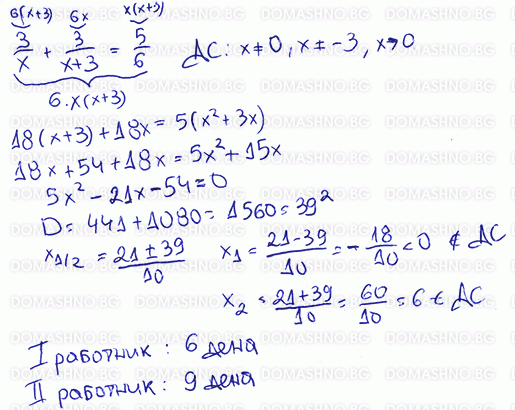 6(x+3) 6x x(x+3)
3/x + 3/(x+3) = 5/6 ДС: x≠0, x≠-3, x>0
6.x(x+3)
18(x+3)+18x=5(x²+3x)
18x+54+18x=5x²+15x
5x²-21x-54=0
D=441+1080=1560=39²
x₁/₂ = (21±39)/10 x₁ = (21-39)/10 = -18/10 <0 ∉ ДС
x₂ = (21+39)/10 = 60/10 = 6 ∈ ДС
I работник: 6 дена
II работник: 9 дена
DOMASHNO.BG